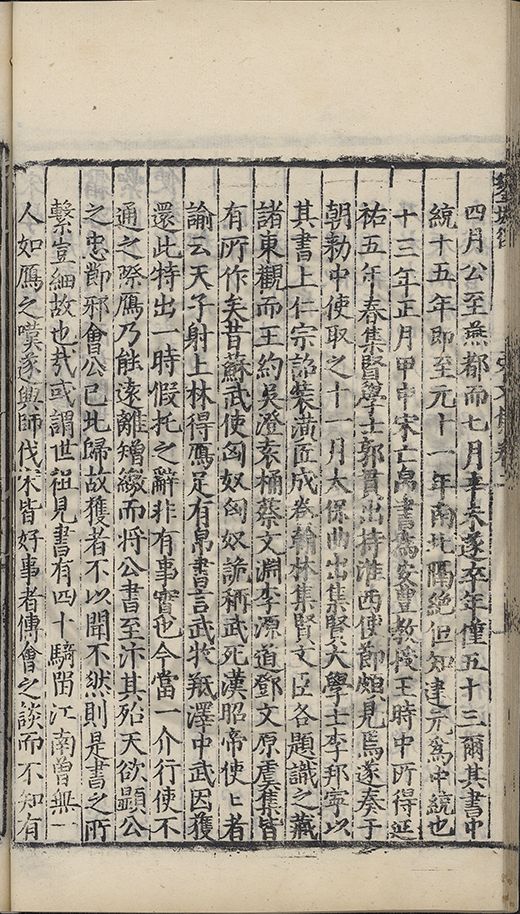 四月公至燕都而七月辛未遂卒年僅五十三爾其書中
統十五年即至元十一年南北隔絕但知建元為中統也
十三年正月甲申宋亡帛書為安豐教授王時中所得延
祐五年春集賢學士郭貫出持淮西使節頗見焉遂奏于
朝勑中使取之十一月太保曲出集賢大學士李邦寧以
其書上仁宗詔裝潢匠成卷翰林集賢文臣各題識之藏
諸東觀而王約吳澄袁桷蔡文淵李源道鄧文原虞集皆
有所作矣昔蘇武使匈奴匈奴詭稱武死漢昭帝使〻者
諭云天子射上林得鴈足有帛書言武牧羝澤中武因獲
還此特出一時假托之辭非有事實也今當一介行使不
通之際鴈乃能遠離矰繳而將公書至汴其殆天欲顯公
之忠節邪會公已北歸故獲者不以聞不然則是書之所
繫豈細故也㦲或謂世祖見書有四十騎留江南曾無一
人如鴈之嘆遂興師伐宋皆好事者傅會之談而不知有